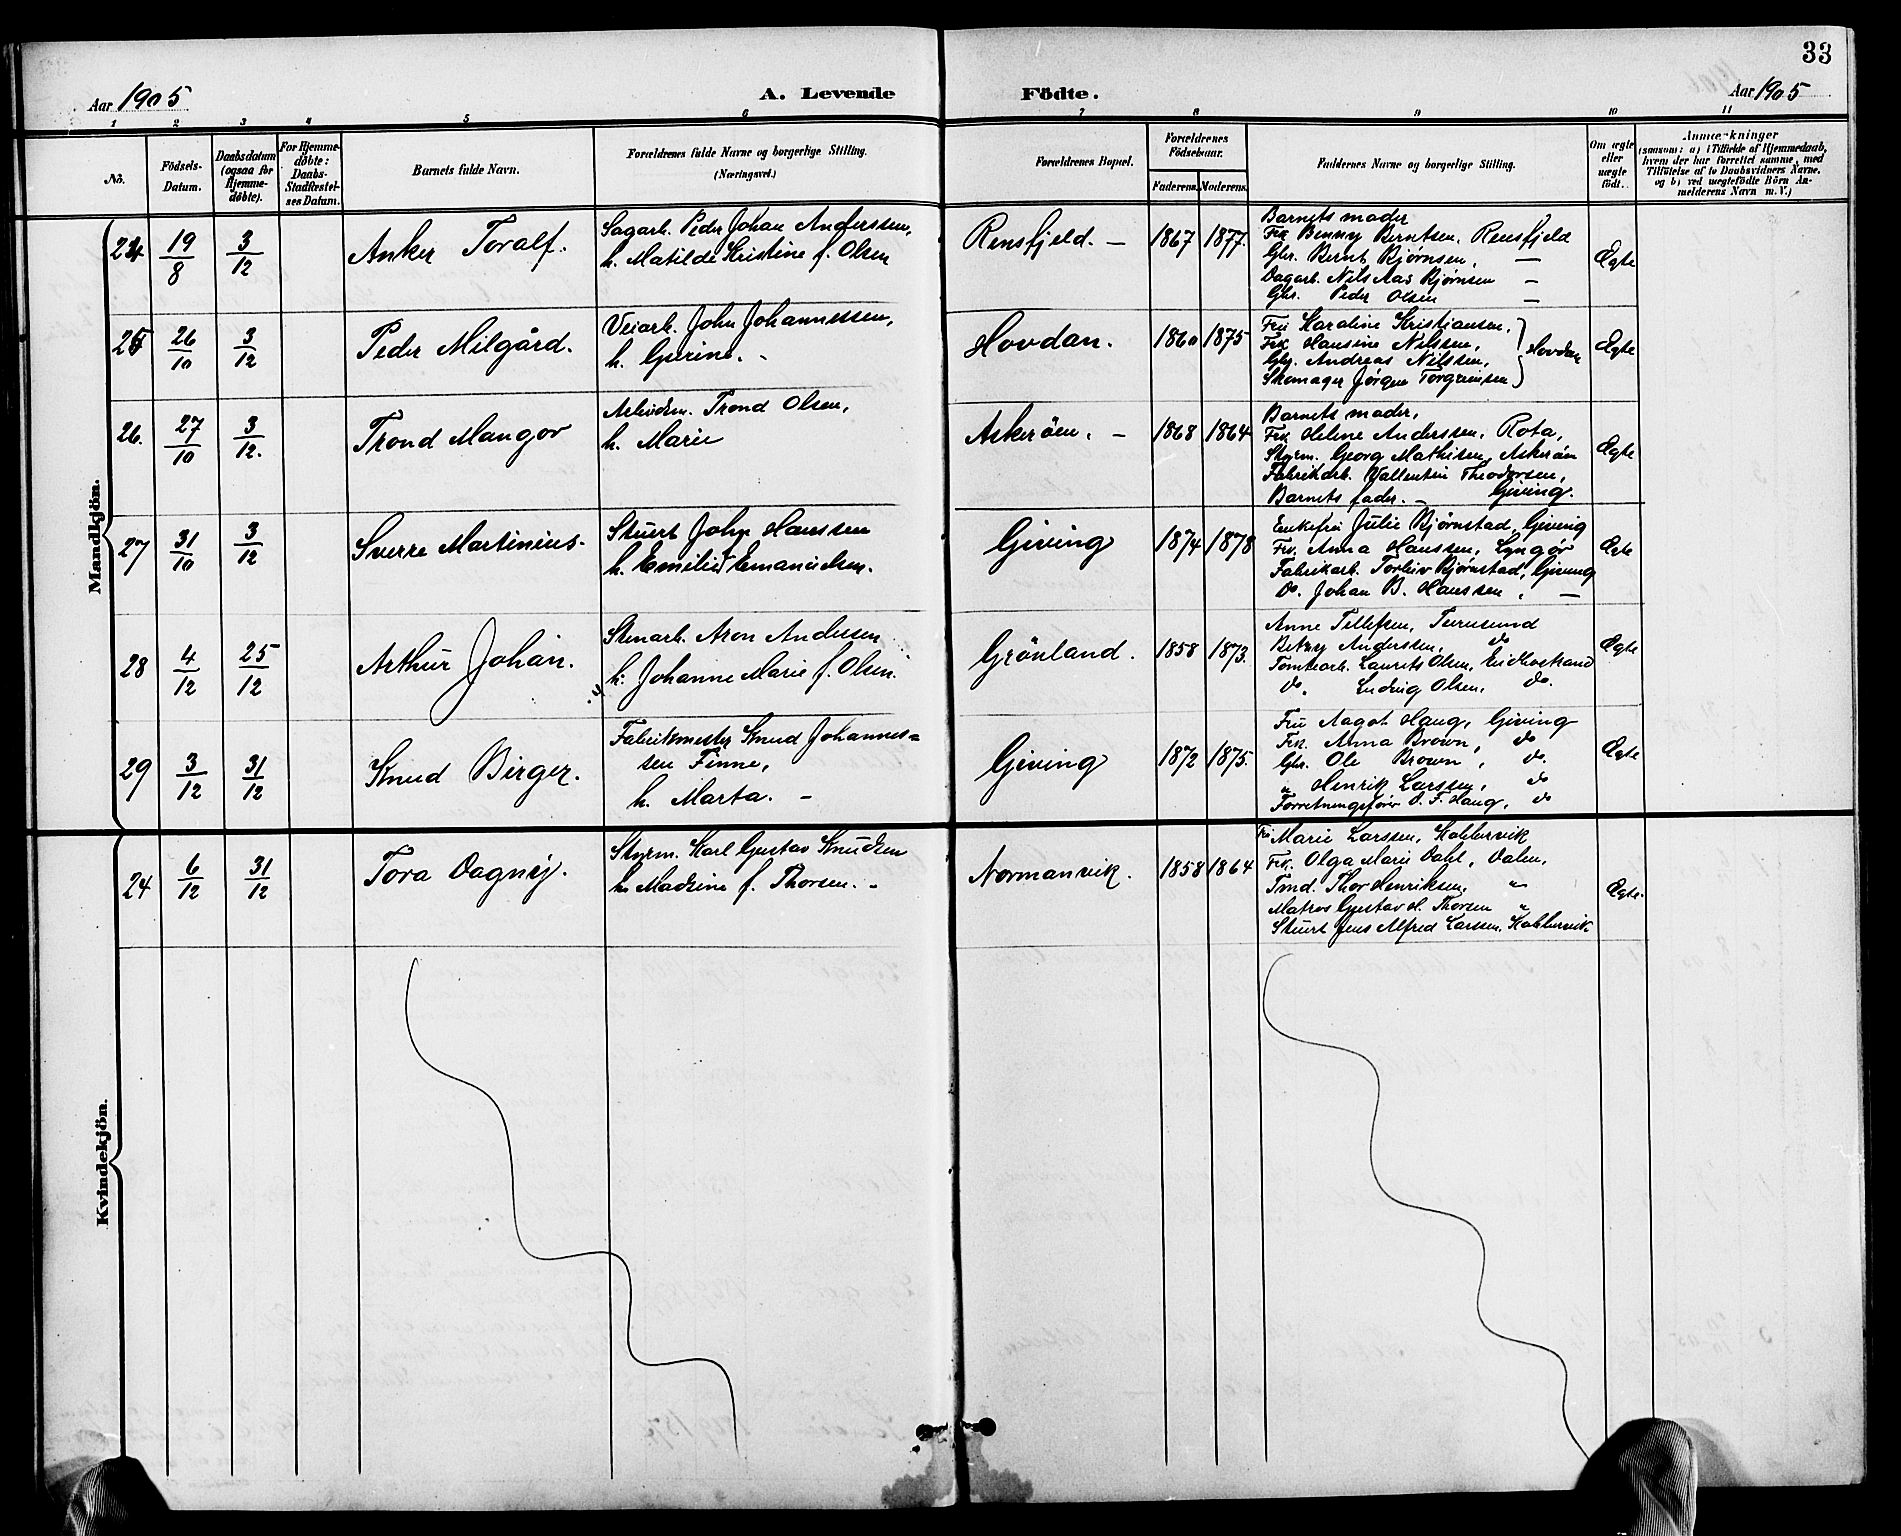 33
Aar 1905
A. Levende Födte.
Aar 1905
1 2 3 4 5 6 7 8 9 10 11
No.
Födsels-Datum.
Daabsdatum (ogsaa for Hjemme-døbte).
For Hjemme-døbte: Daabs-Stadfæstel-ses Datum.
Barnets fulde Navn.
Forældrenes fulde Navne og borgerlige Stilling.
(Næringsvei.)
Forældrenes Bopæl.
Forældrenes Födselsaar.
Faderens. Moderens.
Faddernes Navne og borgerlige Stilling.
Om ægte eller uægte født.
Anmærkninger
(saasom: a) i Tilfælde af Hjemmedaab,
hvem der har forrettet samme, med
Tilföielse af to Daabsvidners Navne,
og b) ved uægtefödte Börn An-
melderens Navn m. V.)
Mandkjön.
24 19/8 3/12 Anker Toralf.
Sagarb. Peder Johan Anderssen,
h. Matilde Kristine f. Olsen
Rensfjeld. — 1867 1877.
Barnets moder
Frk Benny Berntsen, Rensfjeld
Gbr. Bernt Bjørnsen, —
Dagarb. Nils Aas Bjørnsen —
Gbs. Peder Olsen —
Ægte
25 26/10 3/12 Peder Milgård.
Veiarb. John Johannessen,
h. Gurine. -
Hovdan. 1860 1875
Fru Karoline Kristiansen,
Frk Hansine Nilssen,
Gbr. Andreas Nilssen,
Skomager Jørgen Torgrimsen
Hovdan
Ægte
26. 27/10 3/12. Trond Mangor
Arbeidsm. Trond Olsen,
h. Marie
Askerøen. — 1868 1864
Barnets moder,
Frk Helene Anderssen, Rota,
Styrm. Georg Mathisen, Askerøen
Fabrikarb. Vallentin Theodorsen,
Giving.
Barnets fader. —
Ægte
27 31/10 3/12 Sverre Martinius.
Stuert John Hanssen
h. Emilie f Emanuelsen.
Giving 1874 1878
Enkefru Julie Bjørnstad, Giving
Frk. Anna Hanssen, Lyngør
Fabrikarb. Torleiv Bjørnstad, Giving
Do. Johan B. Hanssen, —
Ægte
28 4/12 25/12 Arthur Johan.
Stenarb. Aron Andersen
h: Johanne Marie f. Olsen.
Grönland. 1858 1873.
Anne Tellefsen,
Betzy Anderssen, do
Tomtearb. Laurits Olsen,
Do. Ludvig Olsen, do.
Ægte
29 3/12 31/12 Knud Birger.
Fabrikmester Knud Johannes=
sen Finne,
h. Marta. -
Giving 1872 1875.
Fru Aagot Haug, Giving
Frk. Anna Brown, do
Gbr. Ole Brown, do.
" Henrik Larssen, do
Forretningsfører O. F. Haug, do
Ægte
Kvindekjön.
24 6/12 31/12 Tora Dagny.
Styrm. Karl Gustav Knudsen
h. Madsine f. Thorsen. -
Normanvik. 1858 1864
Fru Marie Larssen, Kabbervik
Frk. Olga Marie Dahl, Dalen,
Tmd. Thor Henriksen, "
Matros Gustav H. Thorsen "
Stuert Jens Alfred Larssen, Kabbervik
Ægte.